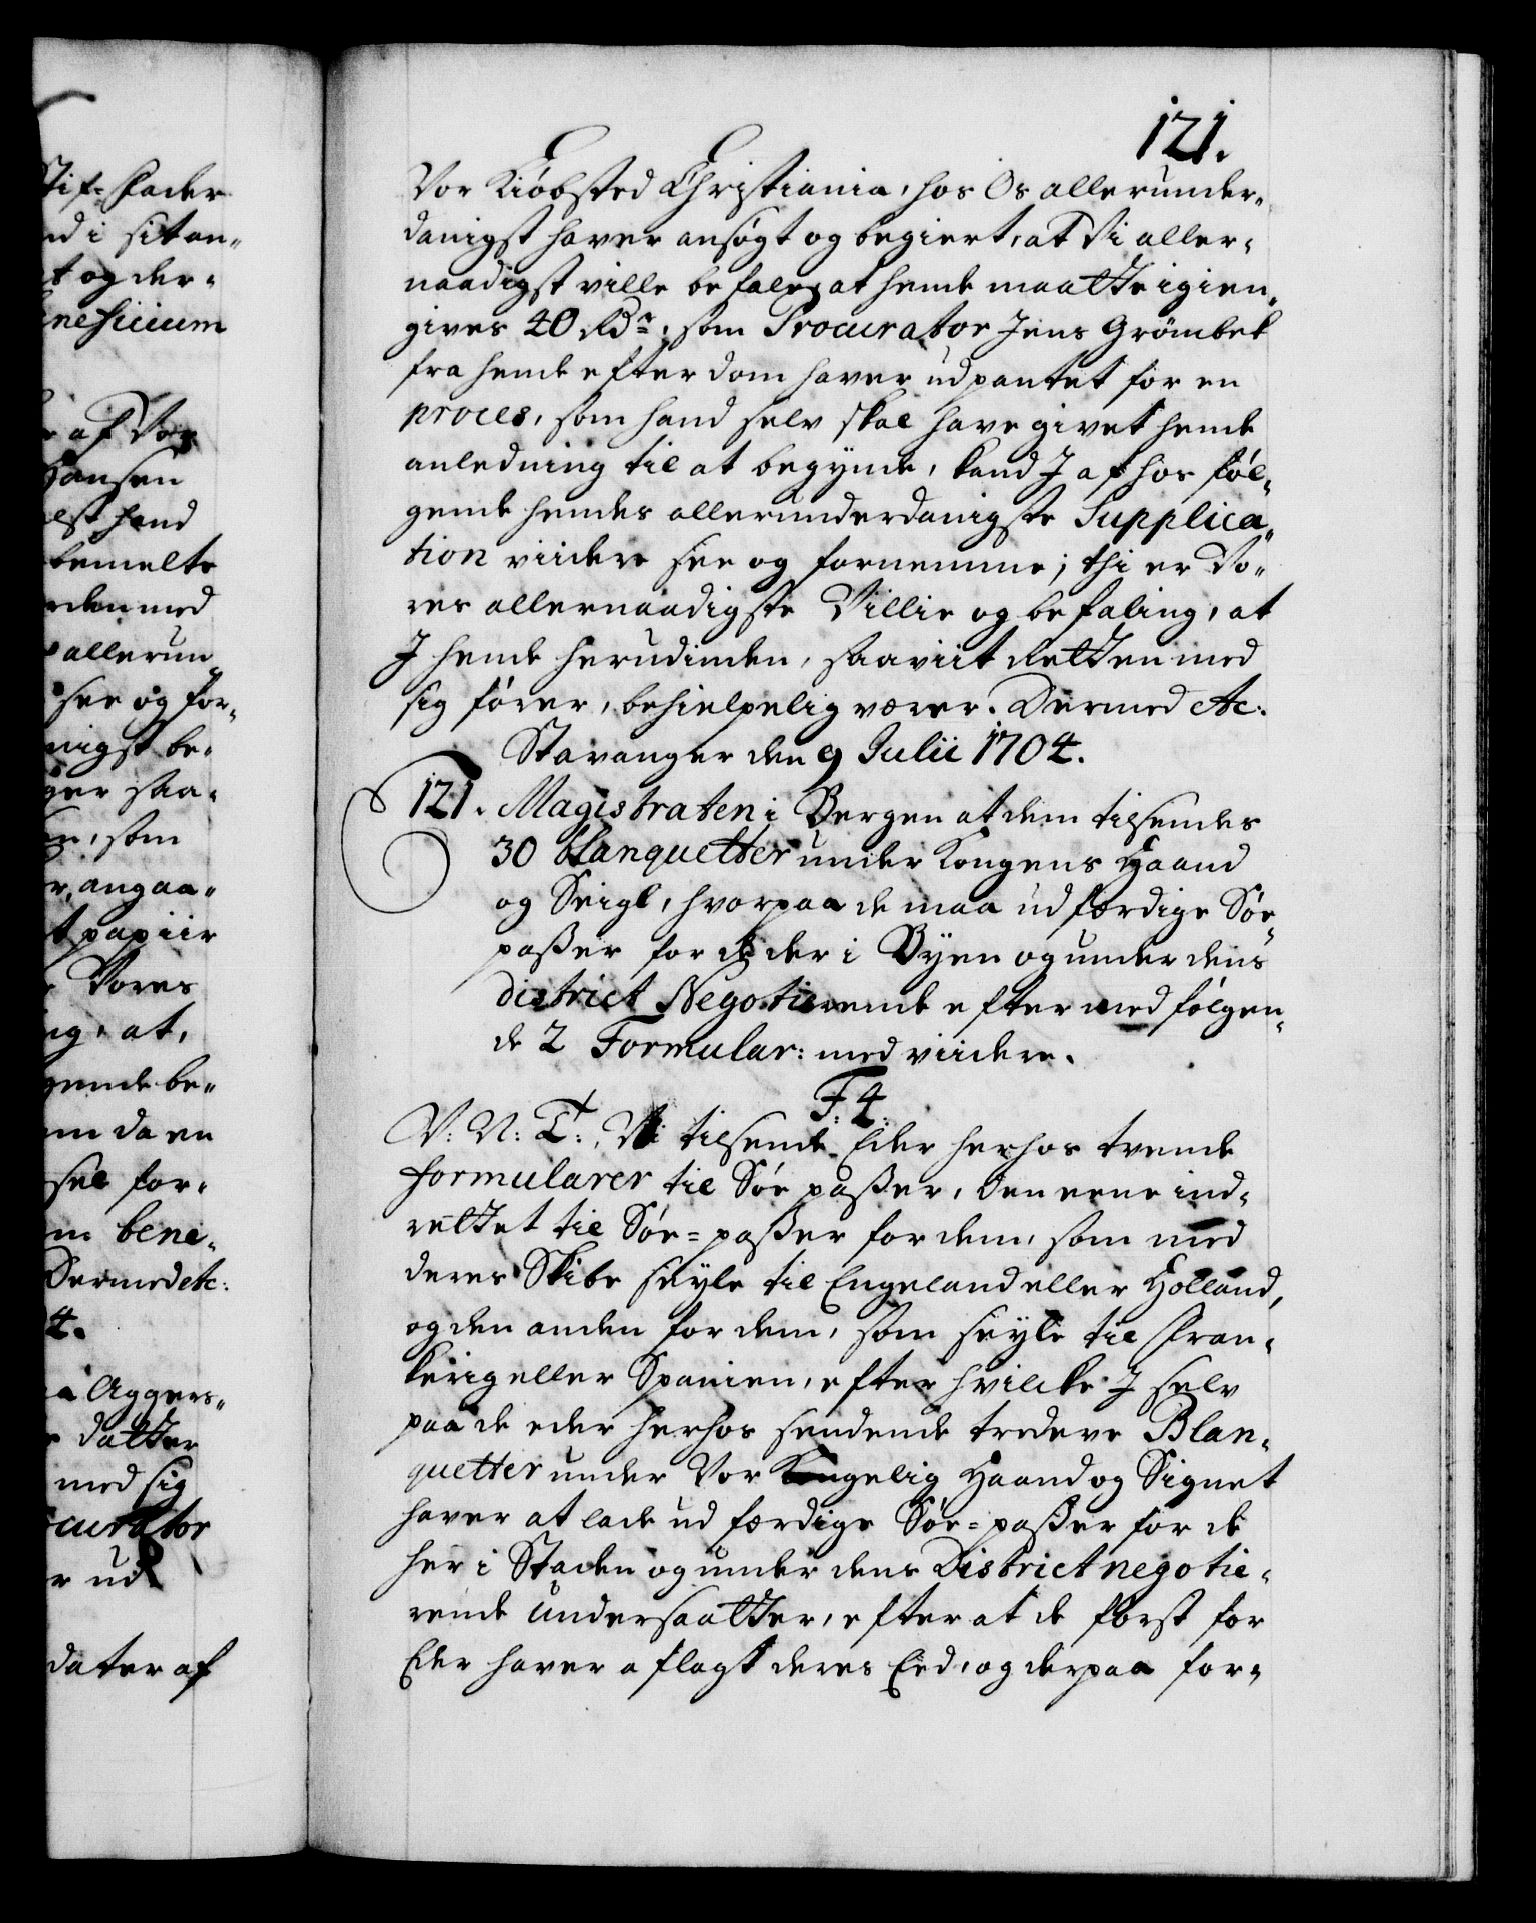 121.
Vor Kiöbsted Christiania, hos Os allerunder-
danigst haver ansögt og begiert, at Vi aller-
naadigst ville befale, at hende maatte igien-
gives 40 Rdr, som Procurator Jens Grömbek
fra hende efter dom haver udpantet for en
proces, som hand selv skal have givet hende
anledning til at begynde, kand J af hos föl-
gende hendes allerunderdanigste Supplica-
tion viidere see og fornemme; thi er Vo-
res allernaadigste Villie og befaling, at
J hende herudinden, saaviit Retten med
sig förer, behielpelig værer. Dermed etc:
Stavanger den 9 Julii 1704.
121. Magistraten i Bergen at dem tilsendes
30 blanquetter under Kongens Haand
og Seigl, hvorpaa de maa udfærdige Söe-
passer for de der i Byen og under dens
district Negotierende efter medfölgen-
de 2 Formular: med viidere.
F. 4.
V: N: T:, Vi tilsende Eder herhos tvende
formularer til Söe passer, den eene ind-
rettet til Söe-passer for dem, som med
deres Skibe seyle til Engeland eller Holland,
og den anden for dem, som seyle til Fran-
kerig eller Spanien, efter hvilcke J selv
paa de eder herhos sendende tredeve Blan-
quetter under Vor Kongelig Haand og Signet
haver at lade udfærdige Söe-passer for de
her i Staden og under dens District negotie-
rende Undersaatter, efterat de först for
Eder haver aflagt deres Eed, og derpaa for-
Stif-fader
nd i sit an-
t og der-
eneficium
af Vor
Hansen
elst hand
bemelte
rden med
allerun-
see og for-
nigst be-
ger saa-
som
angaa-
t papiir
Vores
ng, at,
gende be-
m da en
sel for-
m bene-
Dermed etc:
4.
a Aggers-
datter
med sig
curator
r ud
dater af